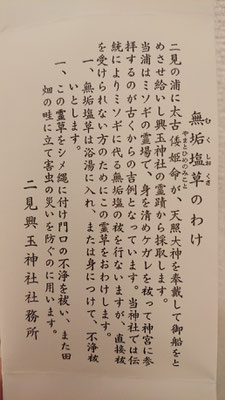 無垢塩草のわけ
むくしおくさ
二見の浦に太古倭姫命が、天照大神を奉戴して御船をと
やまとひめのみこと
めさせ給いし興玉神社の霊蹟から採取します。
当浦はミソギの霊場で、身を清めケガレを祓って神宮に参
拝するのが古くからの吉例となっています。当神社では伝
統によりミソギに代る無垢塩の祓を行ないますが、直接祓
を受けられない方のためにこの霊草をおわけします。
一、無垢塩草は浴湯に入れ、または身につけて、不浄祓
いとします。
一、この霊草をシメ縄に付け門口の不浄を祓い、また田
畑の畦に立て害虫の災いを防ぐのに用います。
二見興玉神社社務所